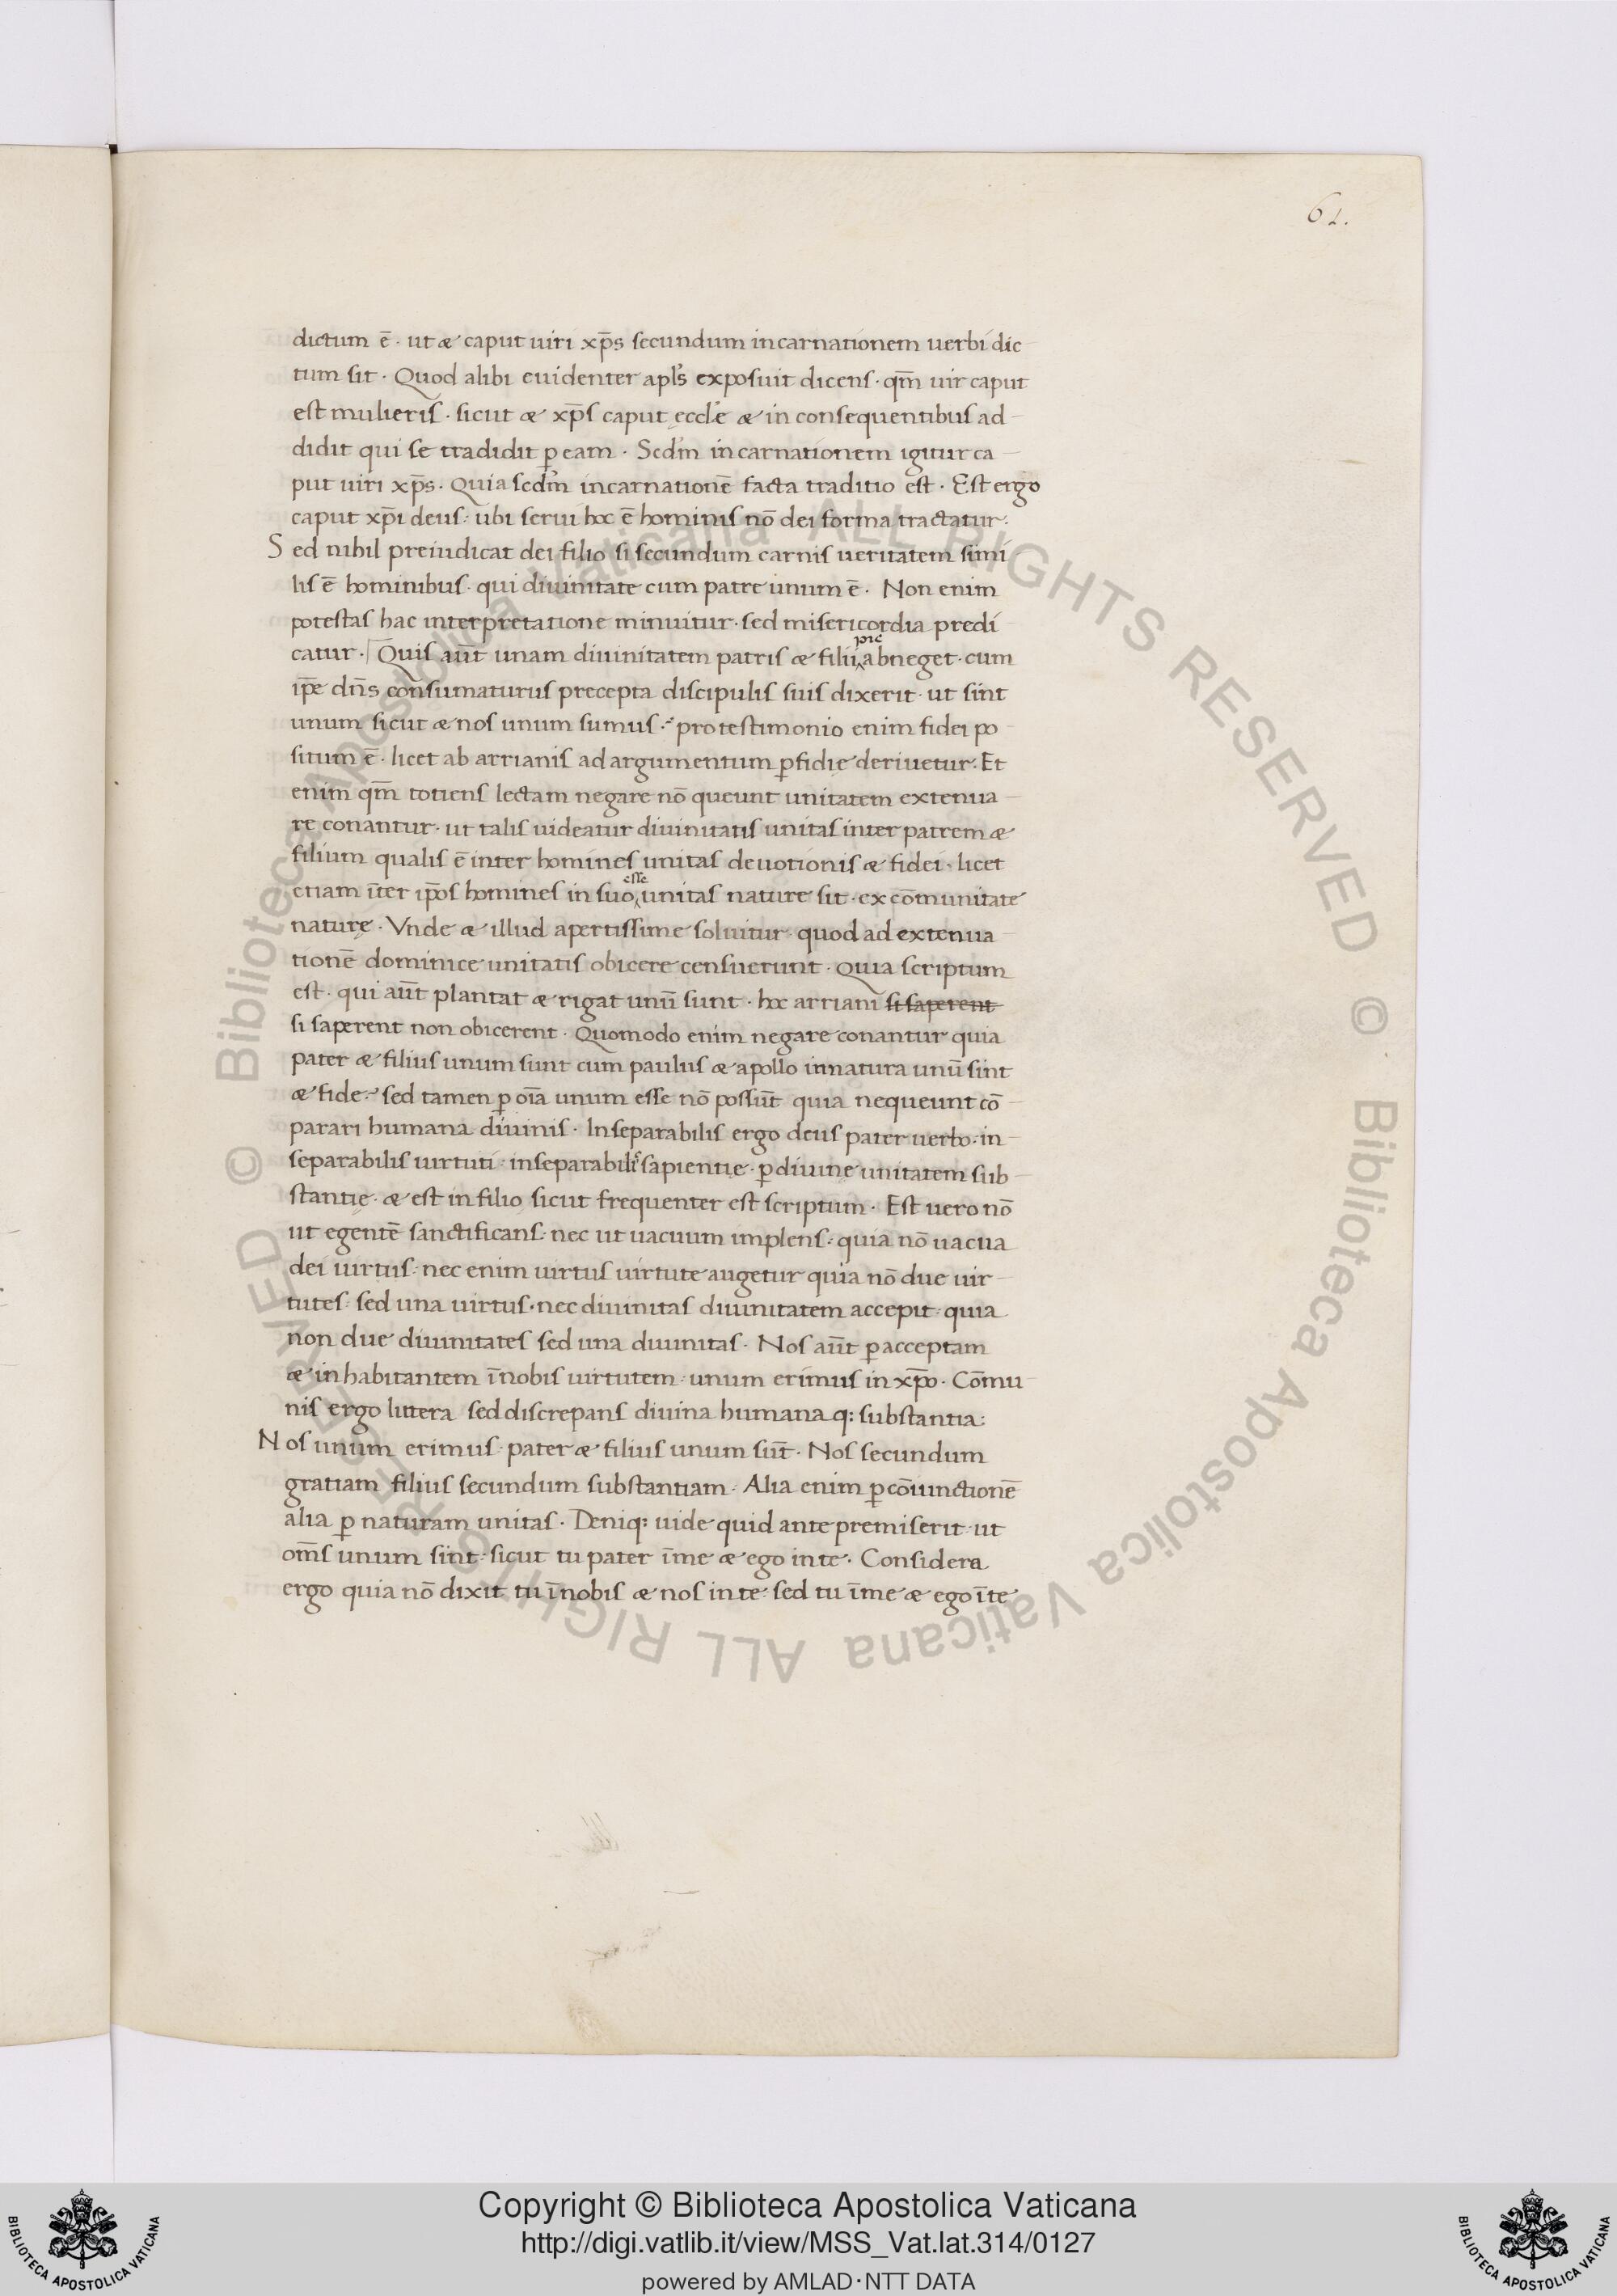 61.
dictum ē · ut æ caput uiri xp̄s secundum incarnationem uerbi dic
tum sit · Quod alibi euidenter apl's exposuit dicens · qm̄ uir caput
est mulieris · sicut æ xp̄s caput ęccl'e æ in consequentibus ad
didit qui se tradidit ꝑ eam · Scdm̄ incarnationem igitur ca
put uiri xp̄s · Quia scdm̄ incarnationē facta traditio est · Est ergo
caput xp̄i deus : ubi serui hoc ē hominis nō dei forma tractatur :
Sed nihil preiudicat dei filio si secundum carnis ueritatem simi
lis ē hominibus · qui diuinitate cum patre unum ē · Non enim
potestas hac interpretatione minuitur · sed misericordia predi
catur · Quis aūt unam diuinitatem patris æ filii pie abneget · cum
ip̄e dn̄s consumaturus precepta discipulis suis dixerit · ut sint
unum sicut æ nos unum sumus · pro testimonio enim fidei po
situm ē · licet ab arrianis ad argumentum ꝑfidię deriuetur : Et
enim qm̄ totiens lectam negare nō queunt unitatem extenua
re conantur · ut talis uideatur diuinitatis unitas inter patrem æ
filium qualis ē inter homines unitas deuotionis æ fidei · licet
etiam īter ip̄os homines in suo esse unitas nature sit · ex cōmunitate
naturę · Vnde æ illud apertissime soluitur quod ad extenua
tionē dominice unitatis obicere censuerunt · Quia scriptum
est · qui aūt plantat æ rigat unū sunt · hoc arriani si saperent
si saperent non obicerent · Quomodo enim negare conantur quia
pater æ filius unum sunt cum paulus æ apollo in natura unū sint
æ fide · sed tamen ꝑ oīa unum esse nō possūt quia nequeunt cō
parari humana diuinis · Inseparabilis ergo deus pater uerbo · in
separabilis uirtuti · inseparabilis sapientię · ꝑ diuinę unitatem sub
stantię · æ est in filio sicut frequenter est scriptum · Est uero nō
ut egentē sanctificans : nec ut uacuum implens : quia nō uacua
dei uirtus : nec enim uirtus uirtute augetur quia nō due uir
tutes : sed una uirtus · nec diuinitas diuinitatem accepit : quia
non due diuinitates sed una diuinitas · Nos aūt ꝑ acceptam
æ inhabitantem ī nobis uirtutem · unum erimus in xp̄o · Cōmu
nis ergo littera sed discrepans diuina humanaq: substantia :
Nos unum erimus · pater æ filius unum sūt · Nos secundum
gratiam filius secundum substantiam · Alia enim ꝑ cōiunctionē
alia ꝑ naturam unitas · Deniq: uide quid ante premiserit · ut
om̄s unum sint : sicut tu pater ī me æ ego in te · Considera
ergo quia nō dixit tu ī nobis æ nos in te · sed tu ī me æ ego ī te
© Biblioteca Apostolica Vaticana ALL RIGHTS RESERVED © Biblioteca Apostolica Vaticana ALL RIGHTS RESERVED
Copyright © Biblioteca Apostolica Vaticana
http://digi.vatlib.it/view/MSS_Vat.lat.314/0127
powered by AMLAD·NTT DATA
BIBLIOTECA APOSTOLICA VATICANA
BIBLIOTECA APOSTOLICA VATICANA